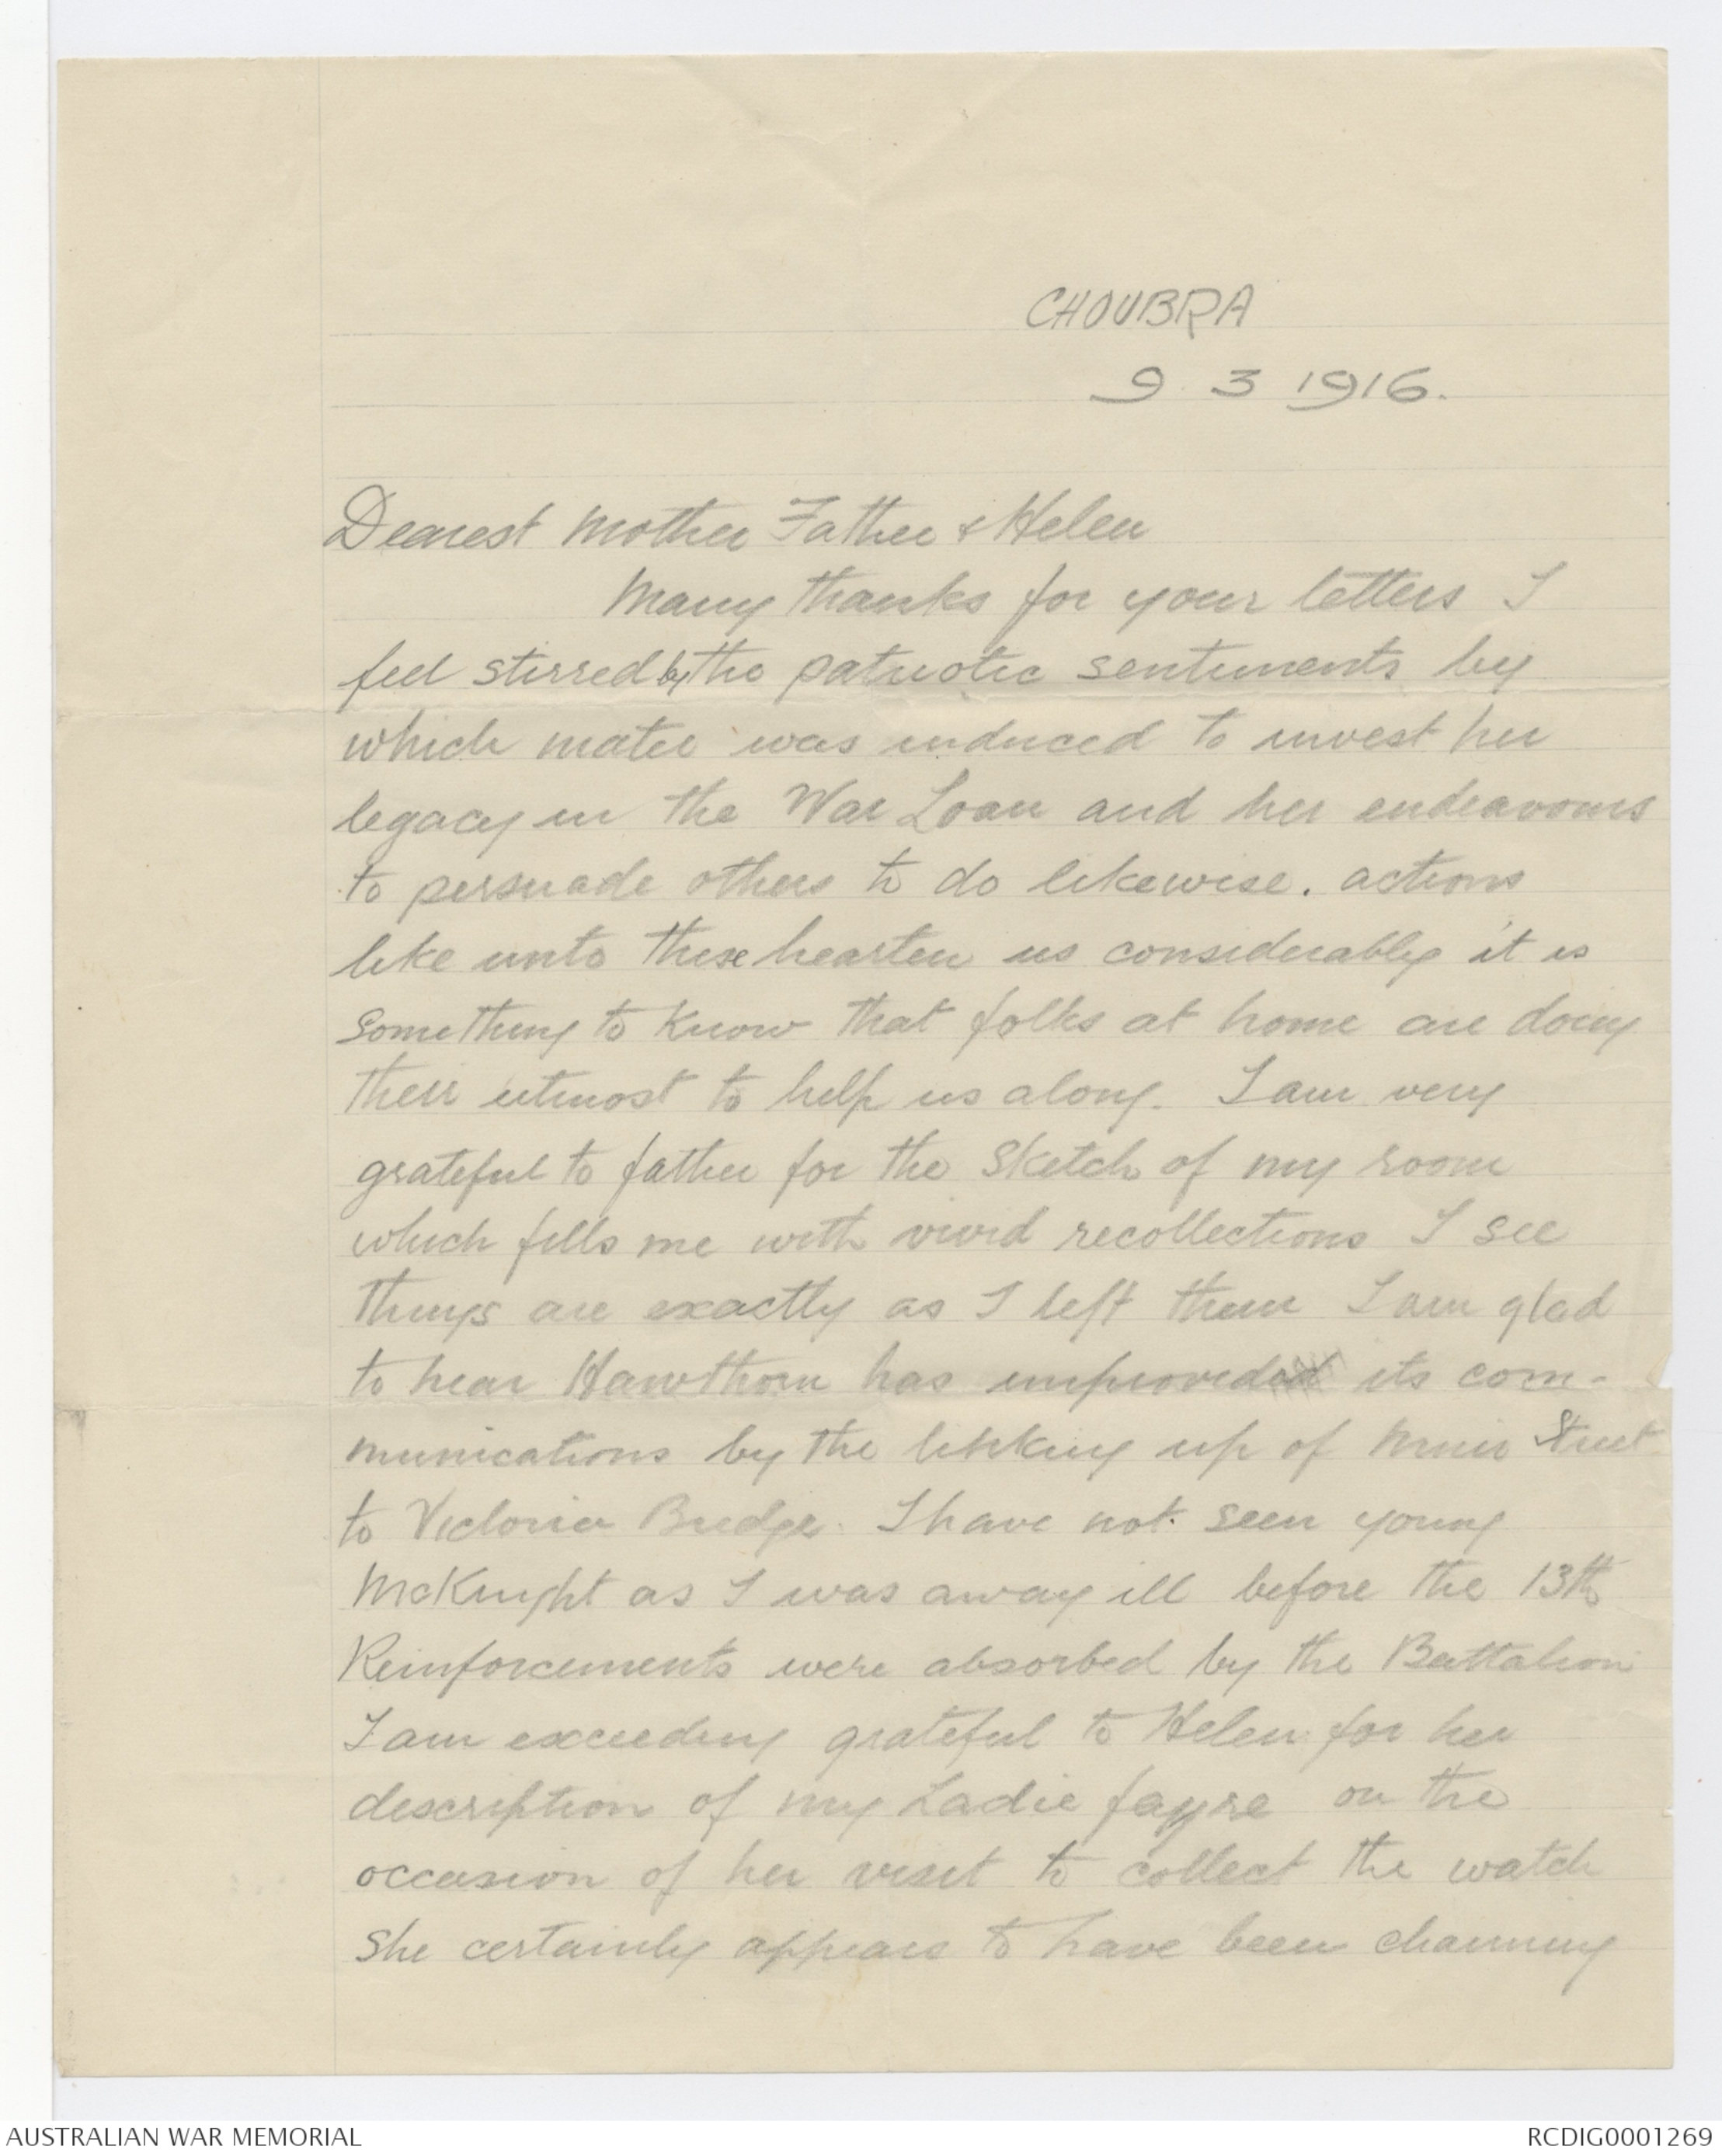 CHOUBRA
9 3 1916.
Dearest Mother Father & Helen
Many thanks for your letters I
feel stirred by the patriotic sentiments by
which mater was induced to invest her
legacy in the War Loan and her endeavours
to persuade others to do likewise. actions
like unto these hearten us considerably it is
something to know that folks at home are doing
their utmost to help us along. I am very
grateful to father for the sketch of my room
which fills me with vivid recollections I see
things are exactly as I left them I am glad
to hear Hawthorn has improved its com-
munications by the linking up of Muir Street
to Victoria Bridge. I have not seen young
McKnight as I was away ill before the 13th
Reinforcements were absorbed by the Battalion
I am exceeding grateful to Helen for her
description of my Ladie fayre on the
occasion of her visit to collect the watch
She certainly appears to have been charming
AUSTRALIAN WAR MEMORIAL
RCDIG0001269